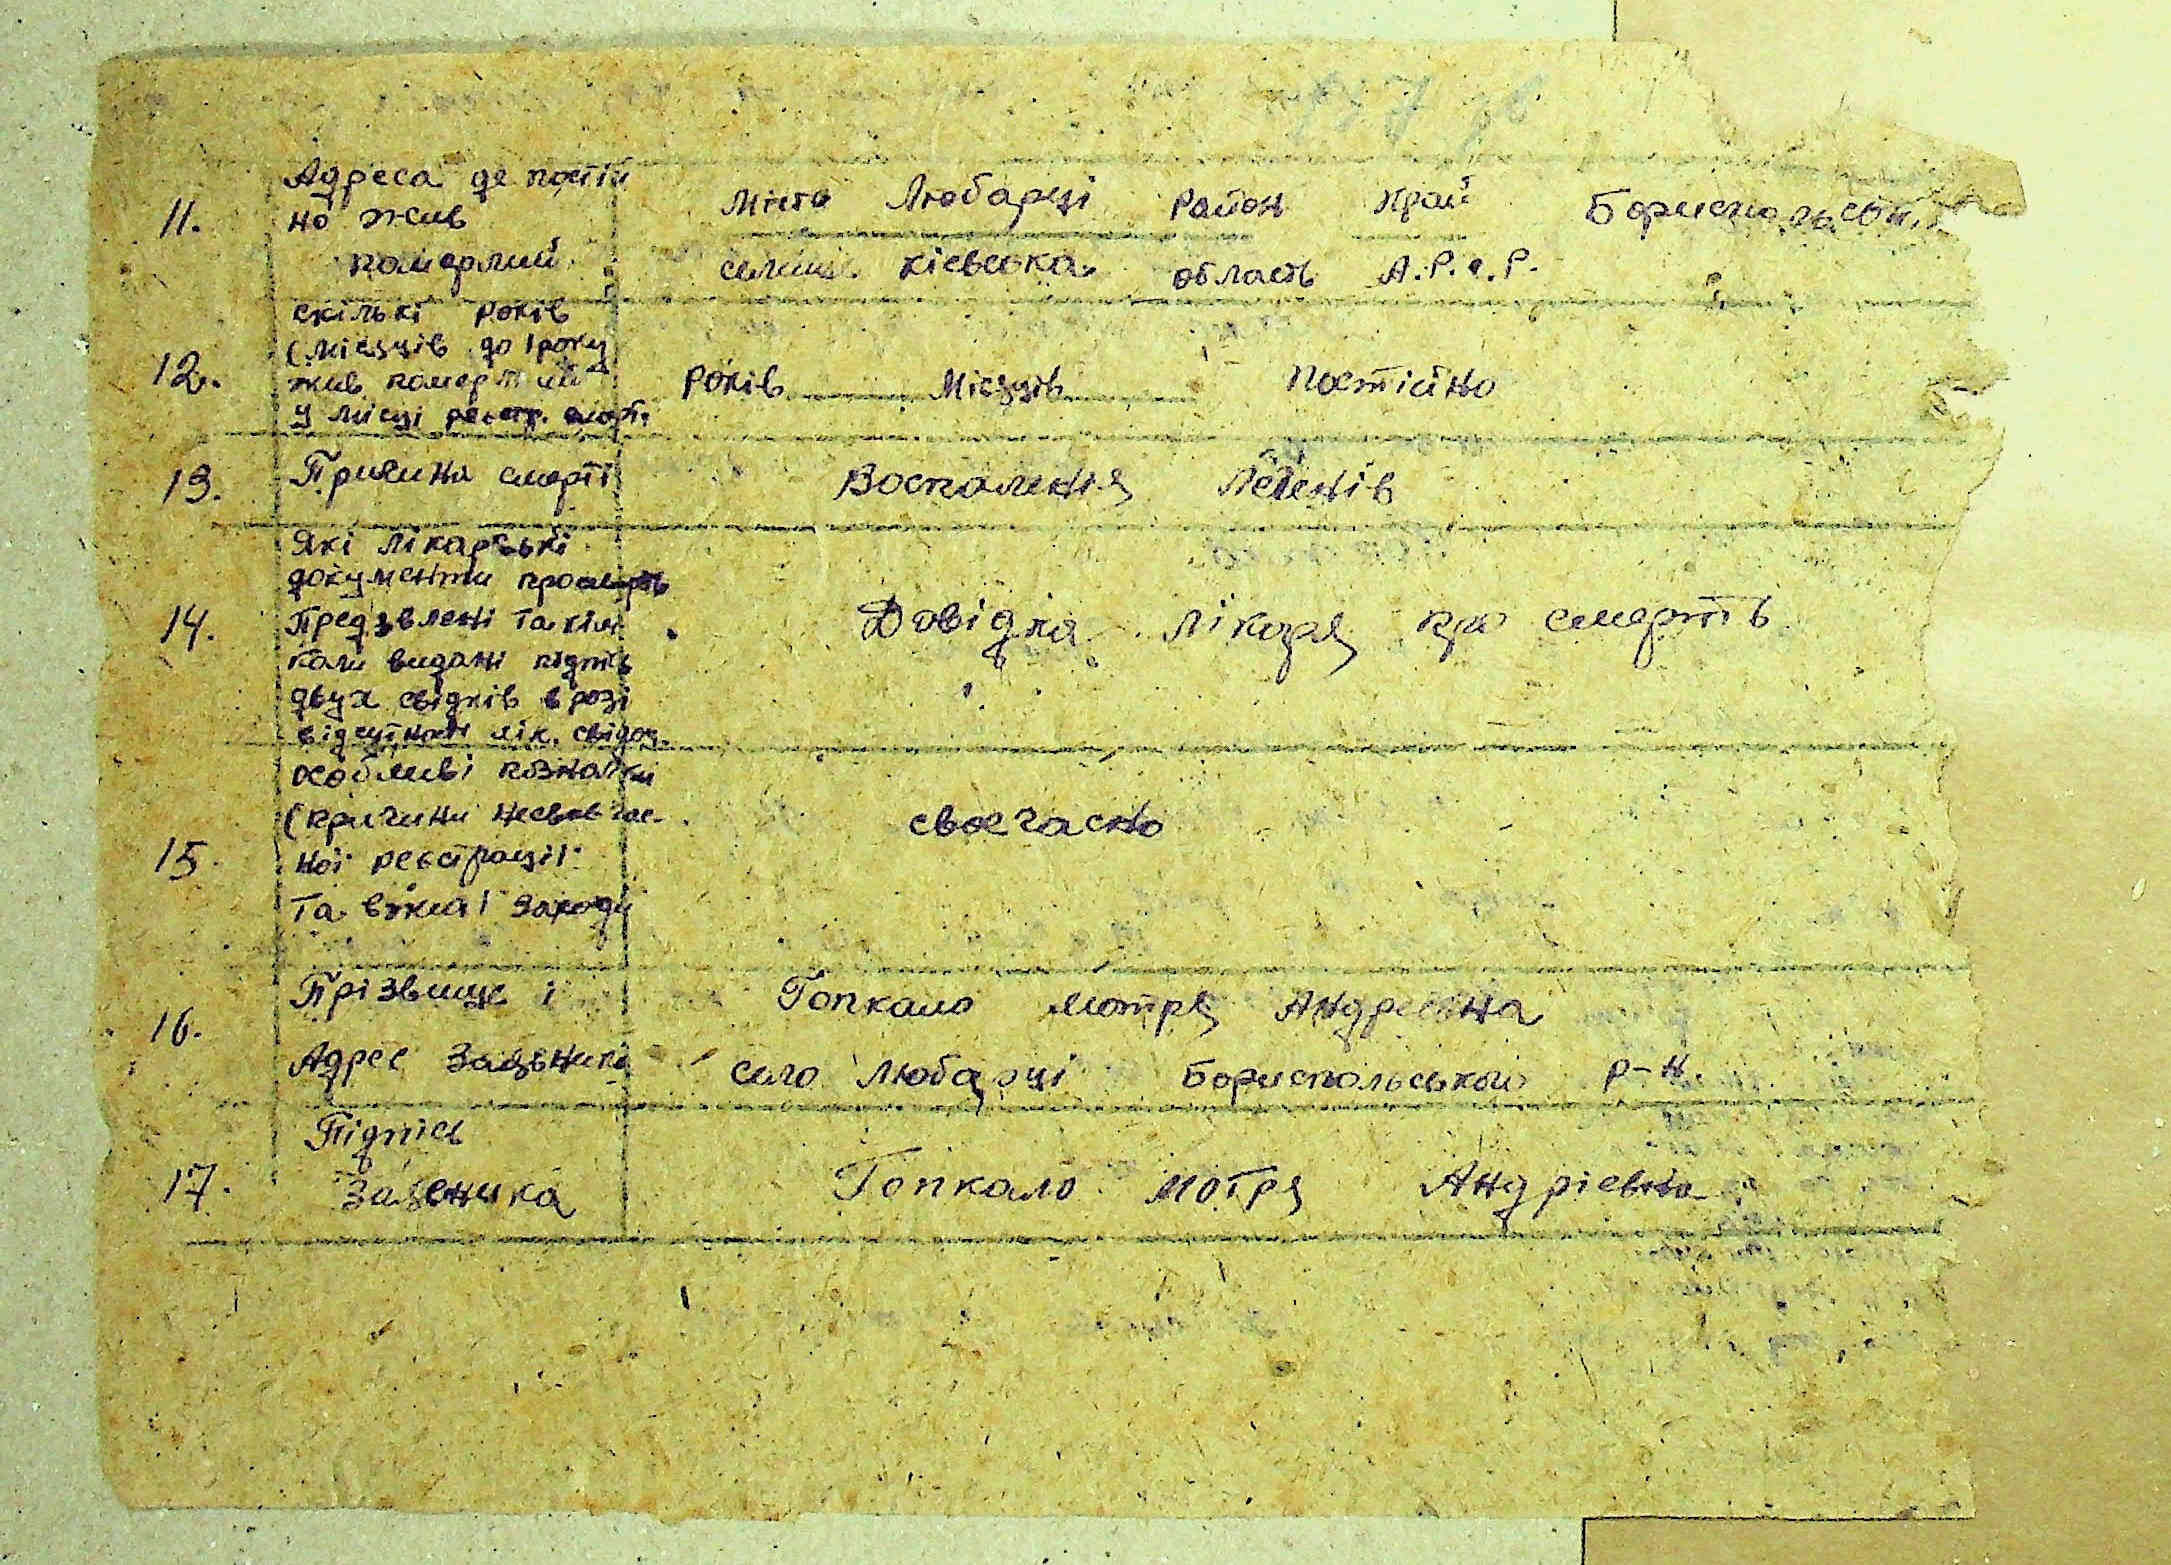 11. Адреса де постій
но жив
померлий
Місто Любарці Район Край Бориспольськ
селище Кієвська область А.Р.С.Р.
12. скількі років
(місяців до 1 року
жив померлий
у місці реєстр. смерт.
Років Місяців Постійно
13. Причина смерті
Воспаления Легенів
14. Які лікарські
документи про смерть
Предзвлені та ким
коли видані підпись
двух свідків в розі
відсутності лік. свідоц.
Довідка лікаря про смерть
15. особливі познатки
(причини несвоєчас-
ної реєстрації
та вжиті заходи
своєчасно
16. Прізвище і
Адрес Заявника
Гопкало Мотря Андріевна
село Любарці Бориспольського р-н.
17. Підпісь
Заявника
Гопкало Мотря Андріевна